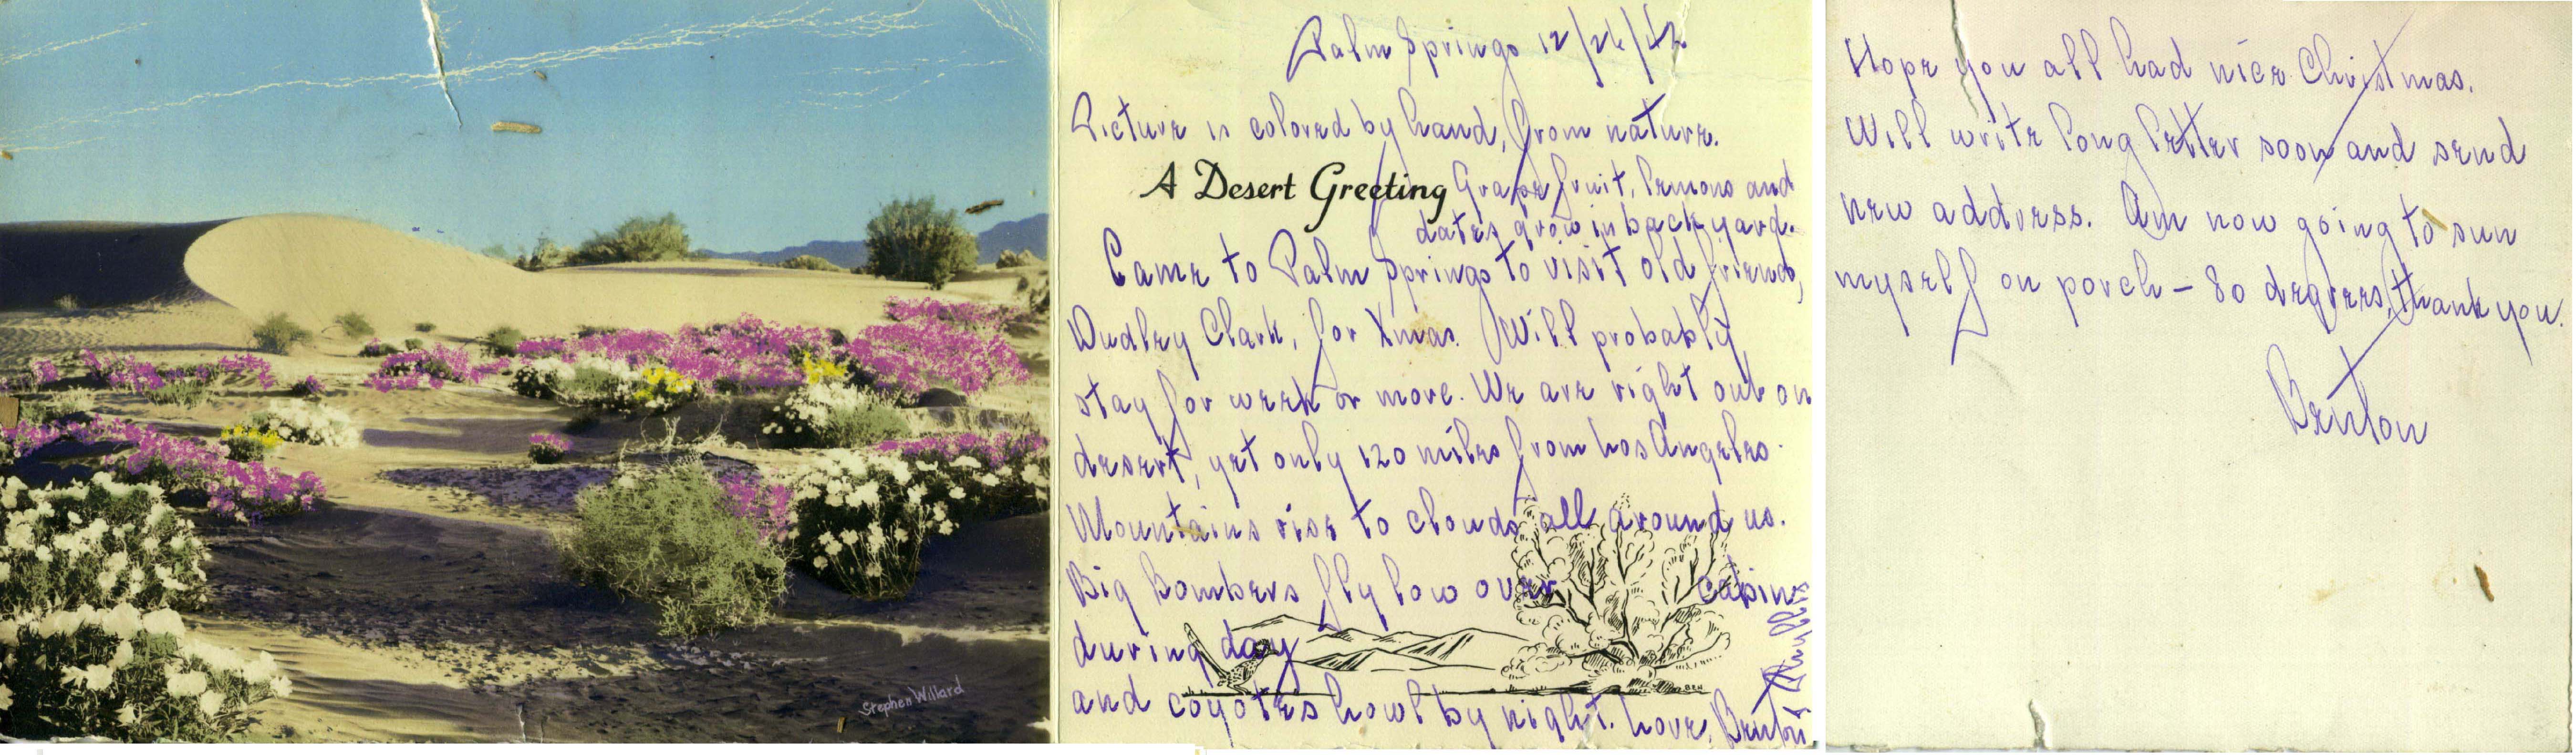 Stephen Willard
Palm Springs 12/26/42
Picture is colored by hand, from nature.
A Desert Greeting Grape fruit, lemons and
dates grow in back yard.
Came to Palm Springs to visit old friend,
Dudley Clark, for Xmas. Will probably
stay for week or more. We are right out on
desert, yet only 120 miles from Los Angeles.
Mountains rise to clouds all around us.
Big Bombers fly low over cabin
during day
and coyotes howl by night. Love, Brenton
Hope you all had nice Christmas.
Will write long letter soon and send
new address. Am now going to sun
myself on porch – 80 degrees, thank you.
Brenton